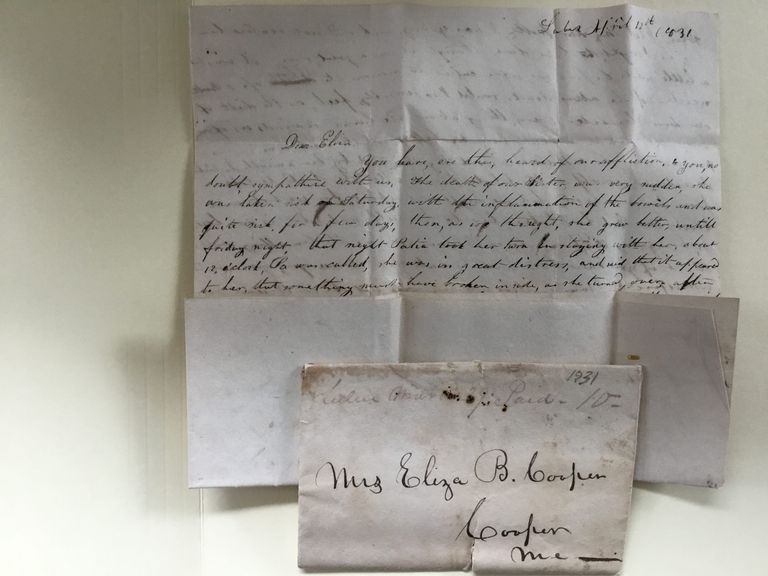 Lubec April 12th 1831
Dear Eliza
You have, ere this, heard of our affliction, & you, no
doubt sympathize with us, The death of our Sister was very sudden, she
was taken sick on Saturday, with the inflammation of the bowels, and was
quite sick, for a few days, then, as we thought, she grew better, untill
friday night that night took her turn in staying with her, about
12, o'clock, Pa was called, she was in great distress, and said that it appeared
to her, that something must have broken inside, as she turned over, after
1831
Paid - 10 -
Mrs Eliza B. Cooper
Cooper
Me